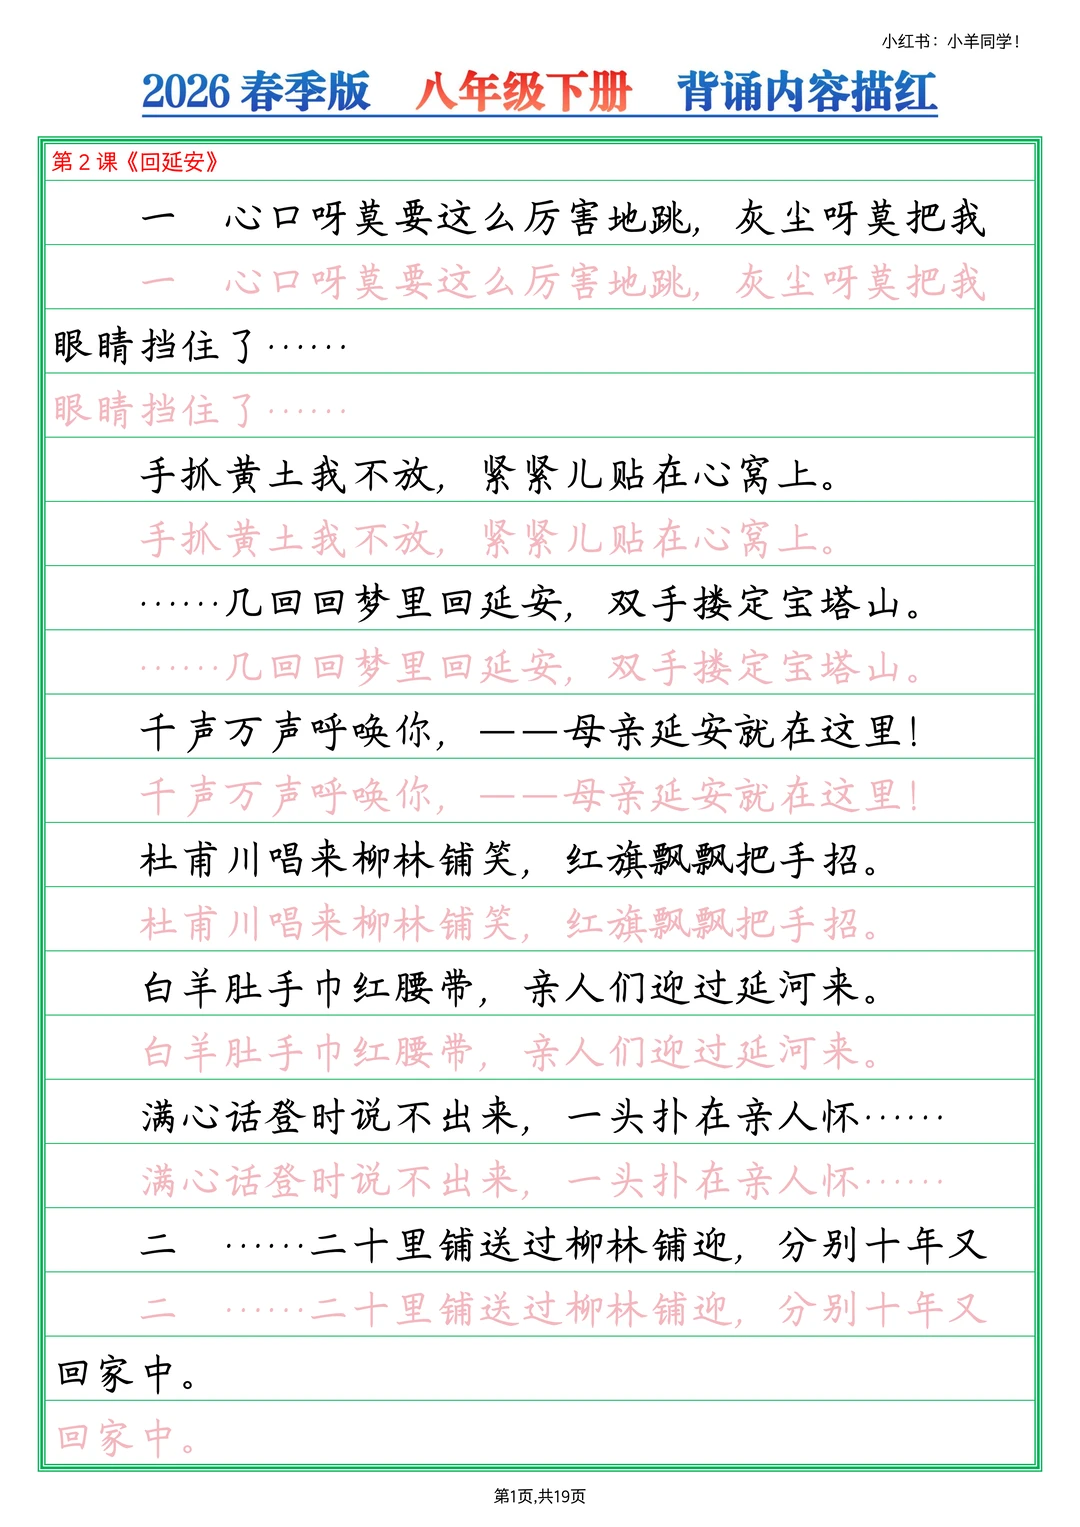 小红书：小羊同学！
2026 春季版　八年级下册　背诵内容描红
第 2 课《回延安》
一　心口呀莫要这么厉害地跳，灰尘呀莫把我
一　心口呀莫要这么厉害地跳，灰尘呀莫把我
眼睛挡住了……
眼睛挡住了……
手抓黄土我不放，紧紧儿贴在心窝上。
手抓黄土我不放，紧紧儿贴在心窝上。
……几回回梦里回延安，双手搂定宝塔山。
……几回回梦里回延安，双手搂定宝塔山。
千声万声呼唤你，——母亲延安就在这里！
千声万声呼唤你，——母亲延安就在这里！
杜甫川唱来柳林铺笑，红旗飘飘把手招。
杜甫川唱来柳林铺笑，红旗飘飘把手招。
白羊肚手巾红腰带，亲人们迎过延河来。
白羊肚手巾红腰带，亲人们迎过延河来。
满心话登时说不出来，一头扑在亲人怀……
满心话登时说不出来，一头扑在亲人怀……
二　……二十里铺送过柳林铺迎，分别十年又
二　……二十里铺送过柳林铺迎，分别十年又
回家中。
回家中。
第1页,共19页